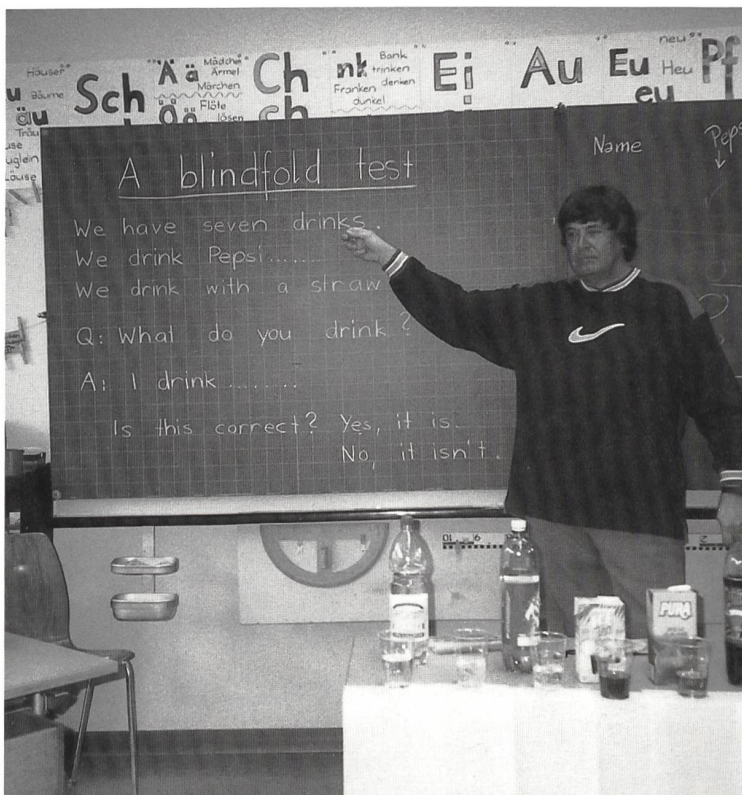 Häuser
Bäume
äu
Sch
Ä ä
Mädchen
Ärmel
Märchen
Flöte
lösen
Ch
ch
nk
Bank
trinken
denken
Franken
dunkel
Ei
Au
Eu
eu
neu
Heu
Pf
A blindfold test
We have seven drinks.
We drink Pepsi.......
We drink with a straw
Q: What do you drink?
A: I drink ........
Is this correct? Yes, it is.
No, it isn't.
Name
Peps
PURA